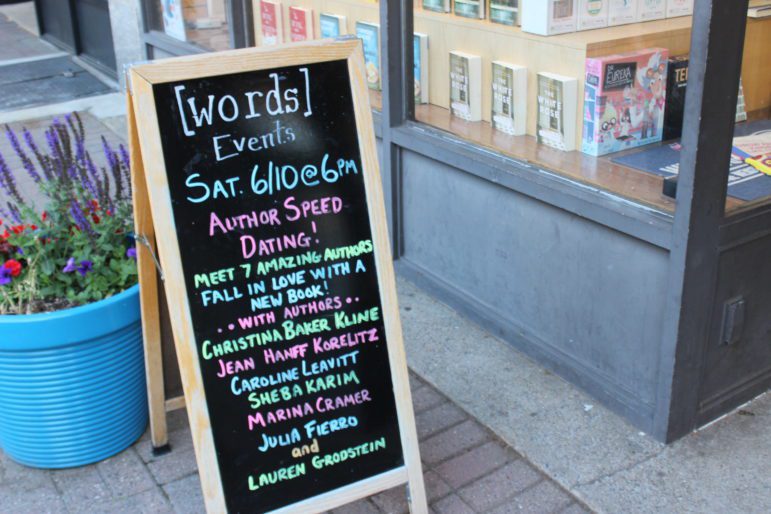 [words]
Events
SAT. 6/10@6PM
AUTHOR SPEED
DATING!
MEET 7 AMAZING AUTHORS
FALL IN LOVE WITH A
NEW BOOK!
..WITH AUTHORS..
CHRISTINA BAKER KLINE
JEAN HANFF KORELITZ
CAROLINE LEAVITT
SHEBA KARIM
MARINA CRAMER
JULIA FIERRO
and
LAUREN GRODSTEIN
WHITE
WHITE
WHITE
EUREKA